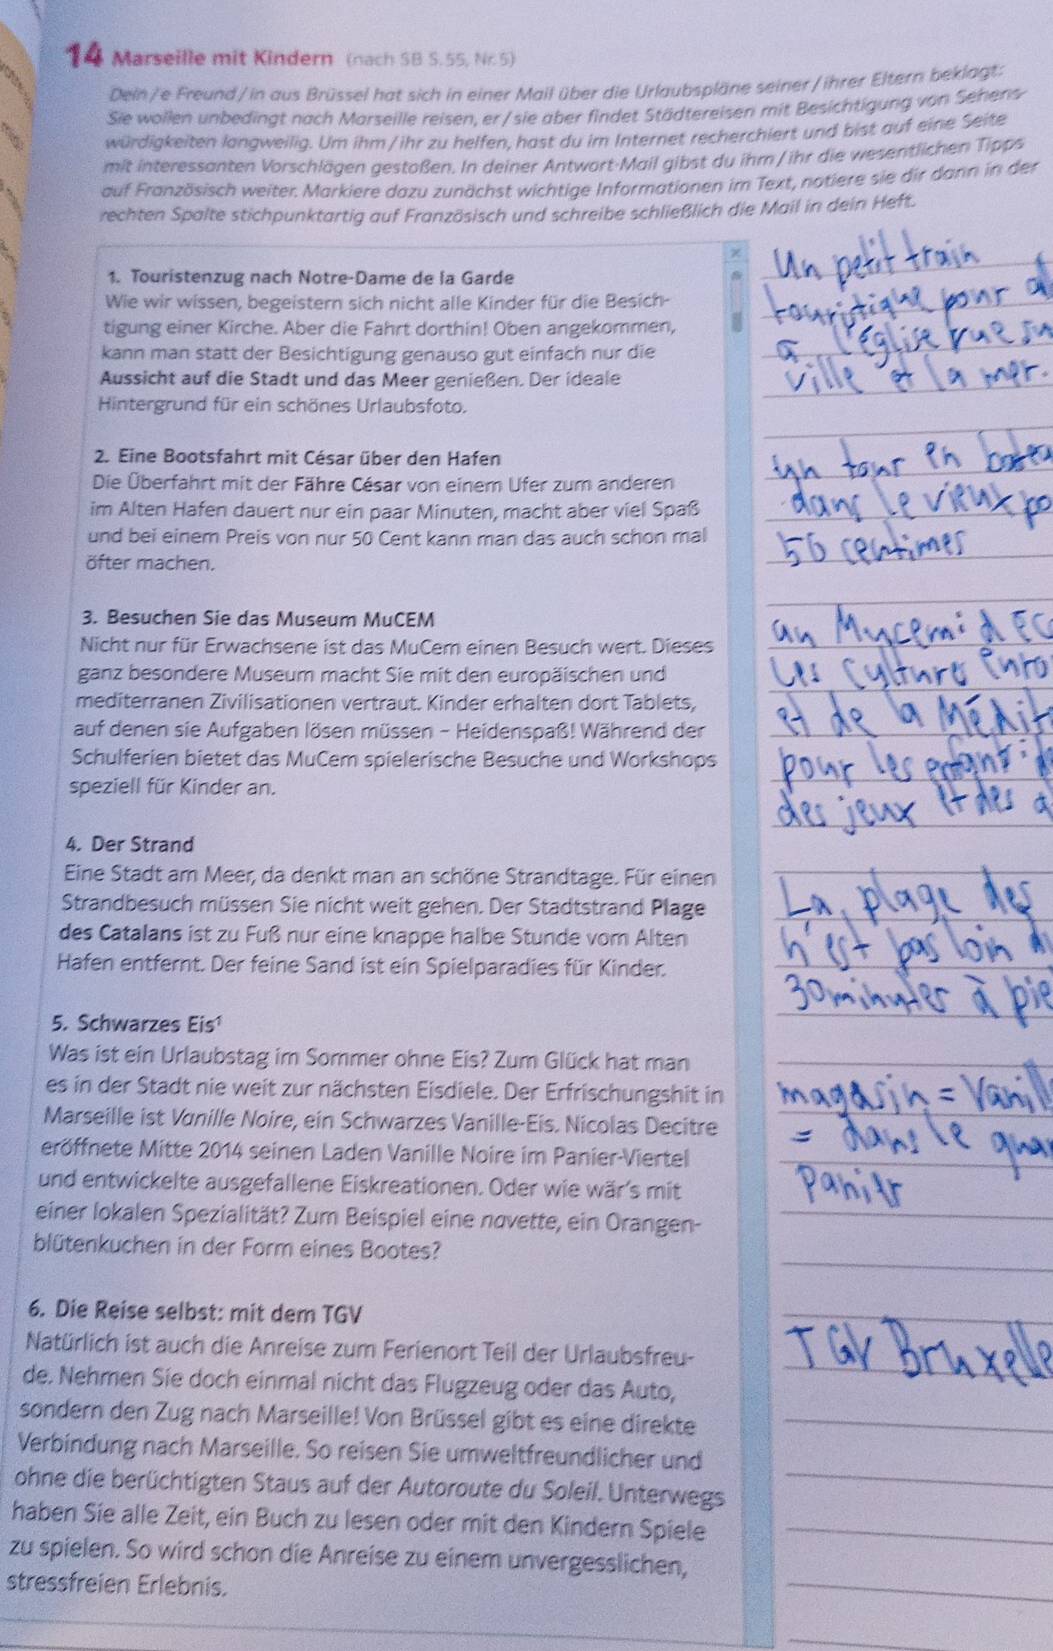 14 Marseille mit Kindern (nach SB S.55, Nr.5)
Dein/e Freund/in aus Brüssel hat sich in einer Mail über die Urlaubspläne seiner/ihrer Eltern beklagt:
Sie wollen unbedingt nach Marseille reisen, er/sie aber findet Städtereisen mit Besichtigung von Sehens-
würdigkeiten langweilig. Um ihm/ihr zu helfen, hast du im Internet recherchiert und bist auf eine Seite
mit interessanten Vorschlägen gestoßen. In deiner Antwort-Mail gibst du ihm/ihr die wesentlichen Tipps
auf Französisch weiter. Markiere dazu zunächst wichtige Informationen im Text, notiere sie dir dann in der
rechten Spalte stichpunktartig auf Französisch und schreibe schließlich die Mail in dein Heft.
1. Touristenzug nach Notre-Dame de la Garde
Wie wir wissen, begeistern sich nicht alle Kinder für die Besich-
tigung einer Kirche. Aber die Fahrt dorthin! Oben angekommen,
kann man statt der Besichtigung genauso gut einfach nur die
Aussicht auf die Stadt und das Meer genießen. Der ideale
Hintergrund für ein schönes Urlaubsfoto.
Un petit train
touristique pour a
à l'église vue su
ville et la mer.
2. Eine Bootsfahrt mit César über den Hafen
Die Überfahrt mit der Fähre César von einem Ufer zum anderen
im Alten Hafen dauert nur ein paar Minuten, macht aber viel Spaß
und bei einem Preis von nur 50 Cent kann man das auch schon mal
öfter machen.
un tour en batea
dans le vieux po
50 centimes
3. Besuchen Sie das Museum MuCEM
Nicht nur für Erwachsene ist das MuCem einen Besuch wert. Dieses
ganz besondere Museum macht Sie mit den europäischen und
mediterranen Zivilisationen vertraut. Kinder erhalten dort Tablets,
auf denen sie Aufgaben lösen müssen – Heidenspaß! Während der
Schulferien bietet das MuCem spielerische Besuche und Workshops
speziell für Kinder an.
au Mucem: déc
les culture euro
et de la Médit
pour les enfants: d
des jeux et des a
4. Der Strand
Eine Stadt am Meer, da denkt man an schöne Strandtage. Für einen
Strandbesuch müssen Sie nicht weit gehen. Der Stadtstrand Plage
des Catalans ist zu Fuß nur eine knappe halbe Stunde vom Alten
Hafen entfernt. Der feine Sand ist ein Spielparadies für Kinder.
La plage des
n'est pas loin d
30 minutes à pie
5. Schwarzes Eis¹
Was ist ein Urlaubstag im Sommer ohne Eis? Zum Glück hat man
es in der Stadt nie weit zur nächsten Eisdiele. Der Erfrischungshit in
Marseille ist Vanille Noire, ein Schwarzes Vanille-Eis. Nicolas Decitre
eröffnete Mitte 2014 seinen Laden Vanille Noire im Panier-Viertel
und entwickelte ausgefallene Eiskreationen. Oder wie wär's mit
einer lokalen Spezialität? Zum Beispiel eine navette, ein Orangen-
blütenkuchen in der Form eines Bootes?
magasin = Vanill
= dans le quar
Panier
6. Die Reise selbst: mit dem TGV
Natürlich ist auch die Anreise zum Ferienort Teil der Urlaubsfreu-
de. Nehmen Sie doch einmal nicht das Flugzeug oder das Auto,
sondern den Zug nach Marseille! Von Brüssel gibt es eine direkte
Verbindung nach Marseille. So reisen Sie umweltfreundlicher und
ohne die berüchtigten Staus auf der Autoroute du Soleil. Unterwegs
haben Sie alle Zeit, ein Buch zu lesen oder mit den Kindern Spiele
zu spielen. So wird schon die Anreise zu einem unvergesslichen,
stressfreien Erlebnis.
TGV Bruxelle